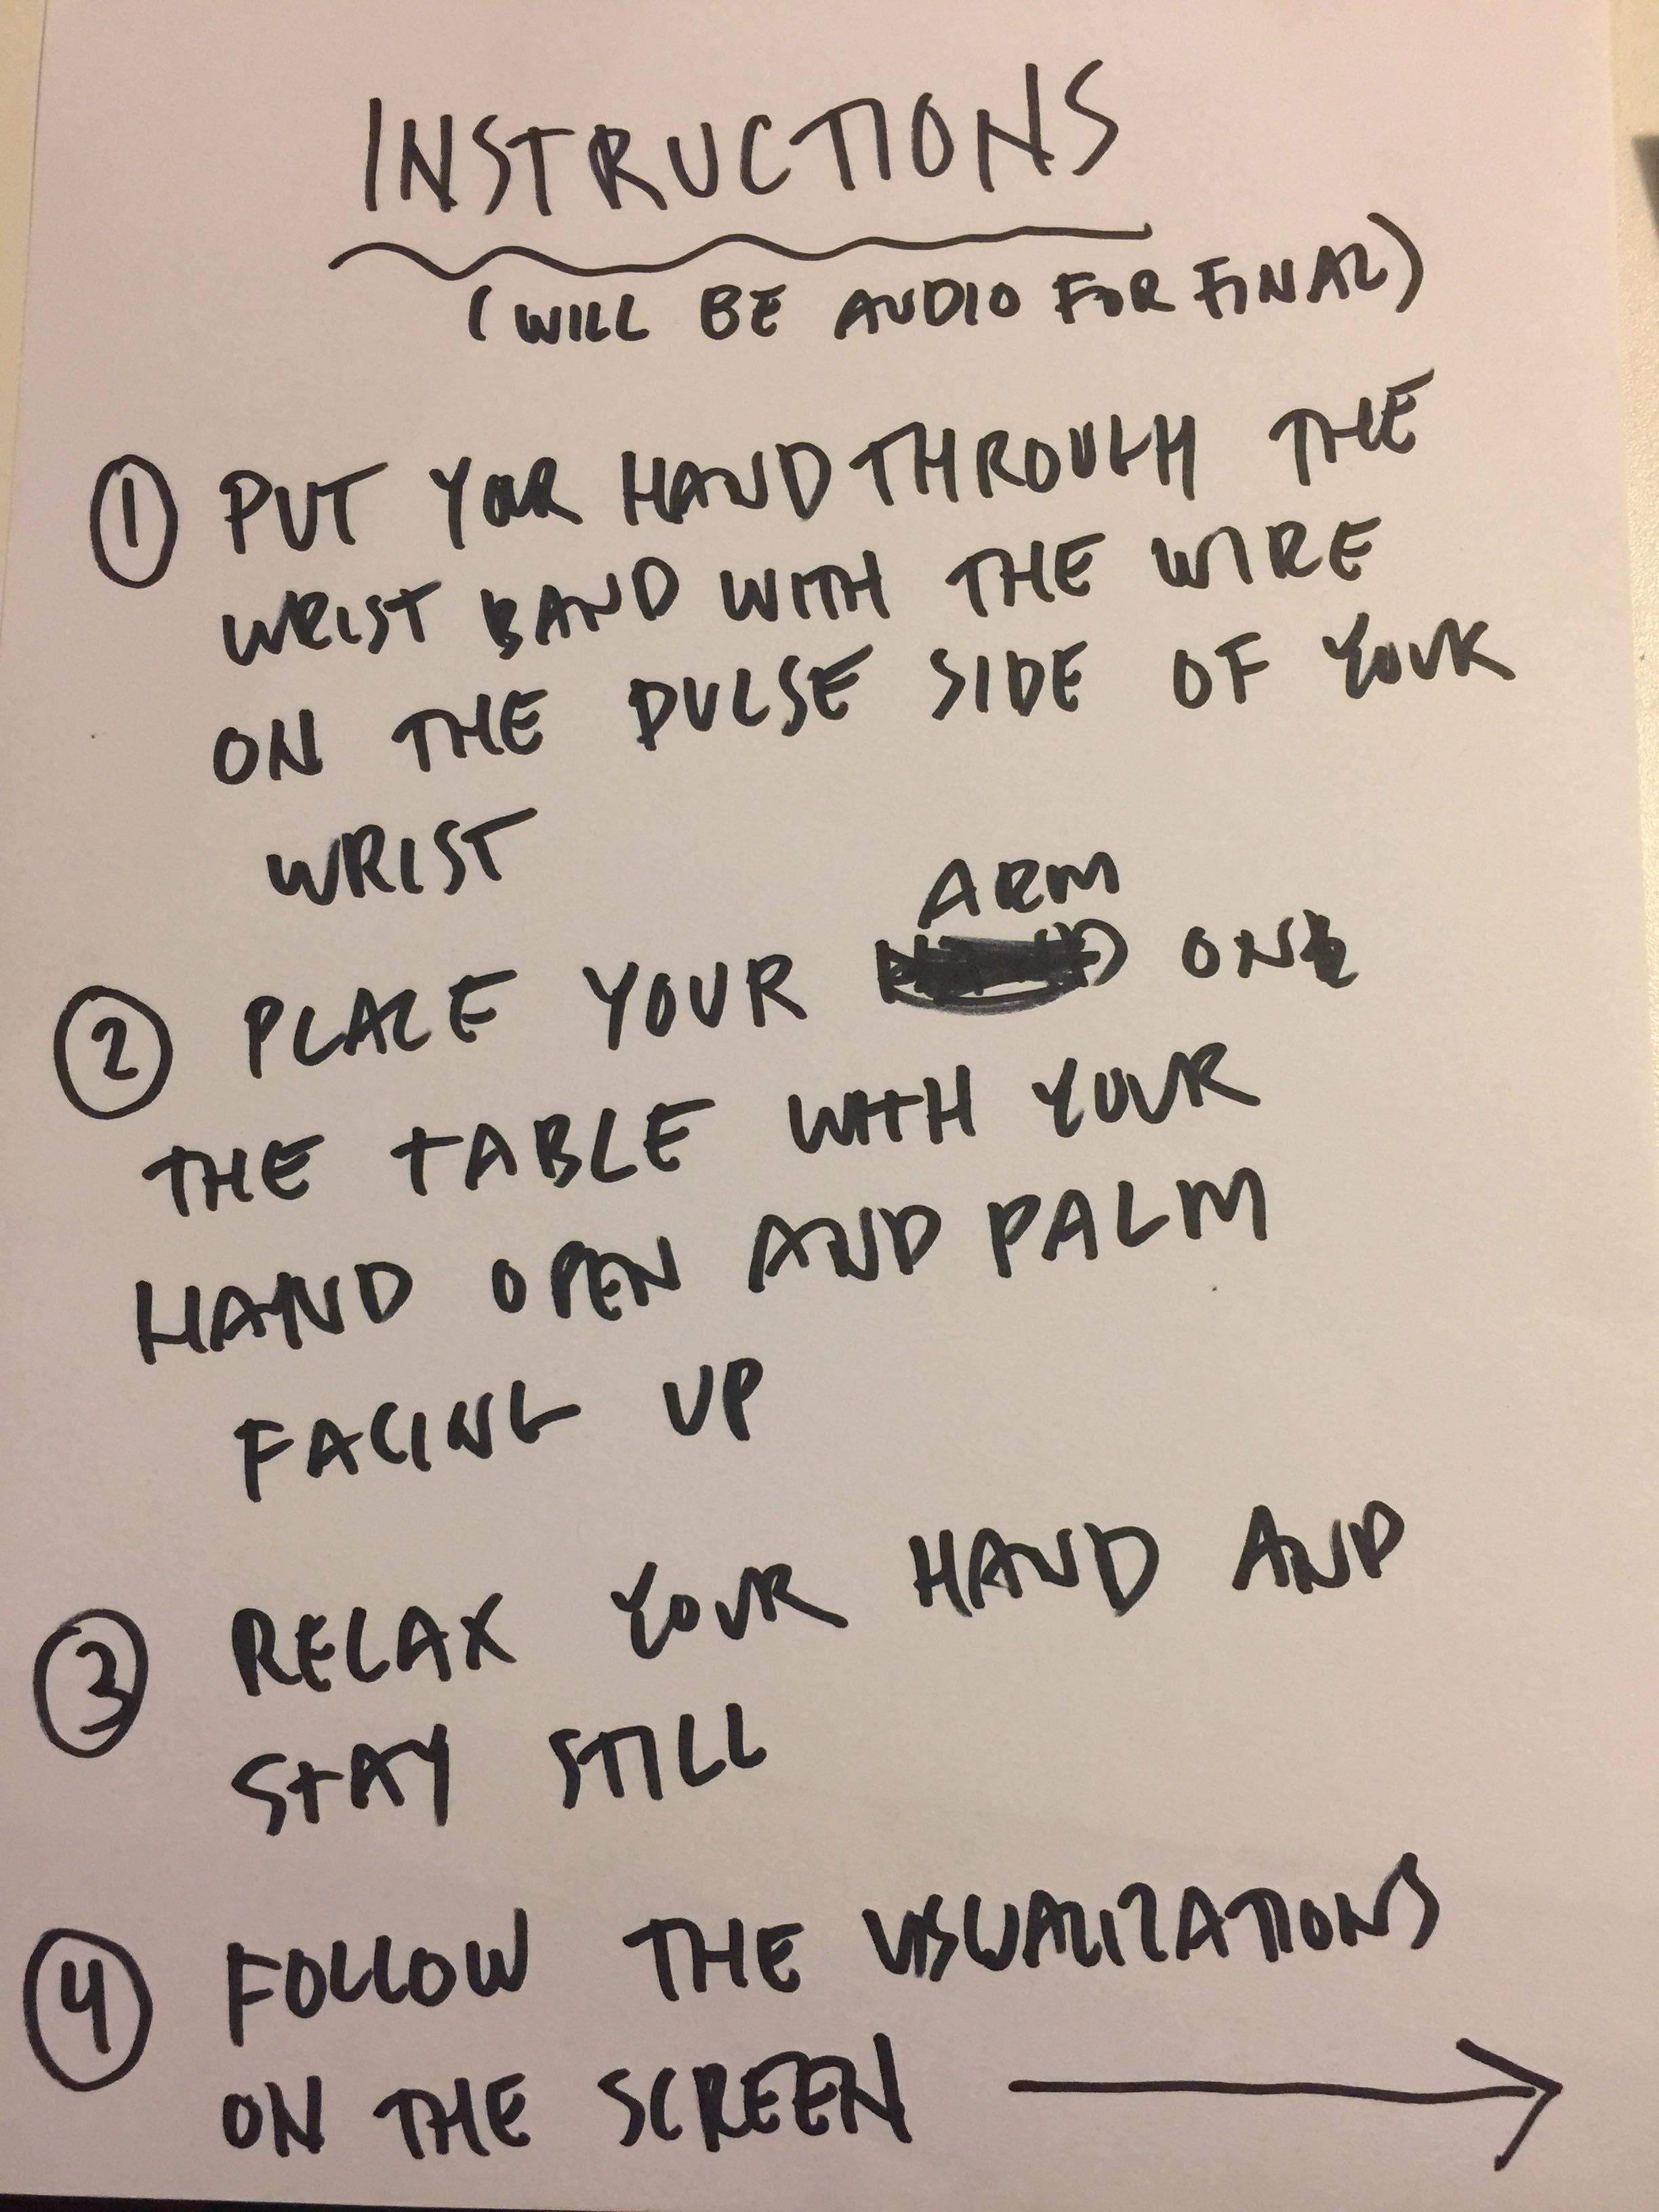 INSTRUCTIONS
(WILL BE AUDIO FOR FINAL)
① PUT YOUR HAND THROUGH THE
WRIST BAND WITH THE WIRE
ON THE PULSE SIDE OF YOUR
WRIST
ARM
② PLACE YOUR ON
THE TABLE WITH YOUR
HAND OPEN AND PALM
FACING UP
③ RELAX YOUR HAND AND
STAY STILL
④ FOLLOW THE VISUALIZATIONS
ON THE SCREEN →